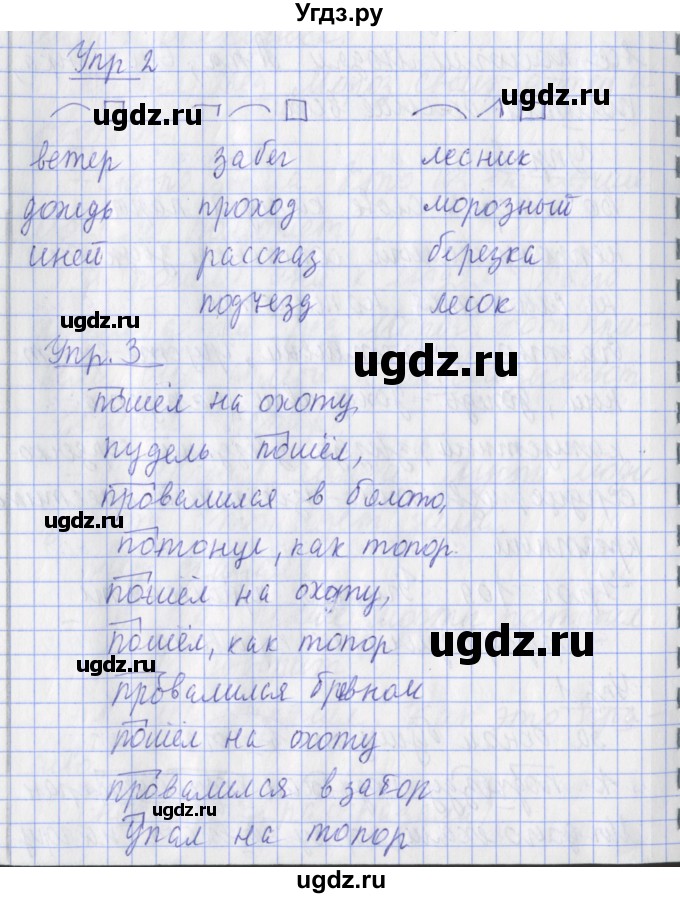 Угдз.ру
Упр 2
ugdz.ru
ugdz.ru
ветер забег лесник
дождь проход морозный
ugdz.ru
иней рассказ березка
подъезд лесок
ugdz.ru
ugdz.ru
Упр. 3
пошёл на охоту,
пудель пошёл,
провалился в болото,
ugdz.ru
потонул, как топор.
ugdz.ru
пошёл на охоту,
пошёл, как топор
ugdz.ru
ugdz.ru
провалился бревном
пошёл на охоту
провалился в забор
ugdz.ru
Упал на топор
ugdz.ru